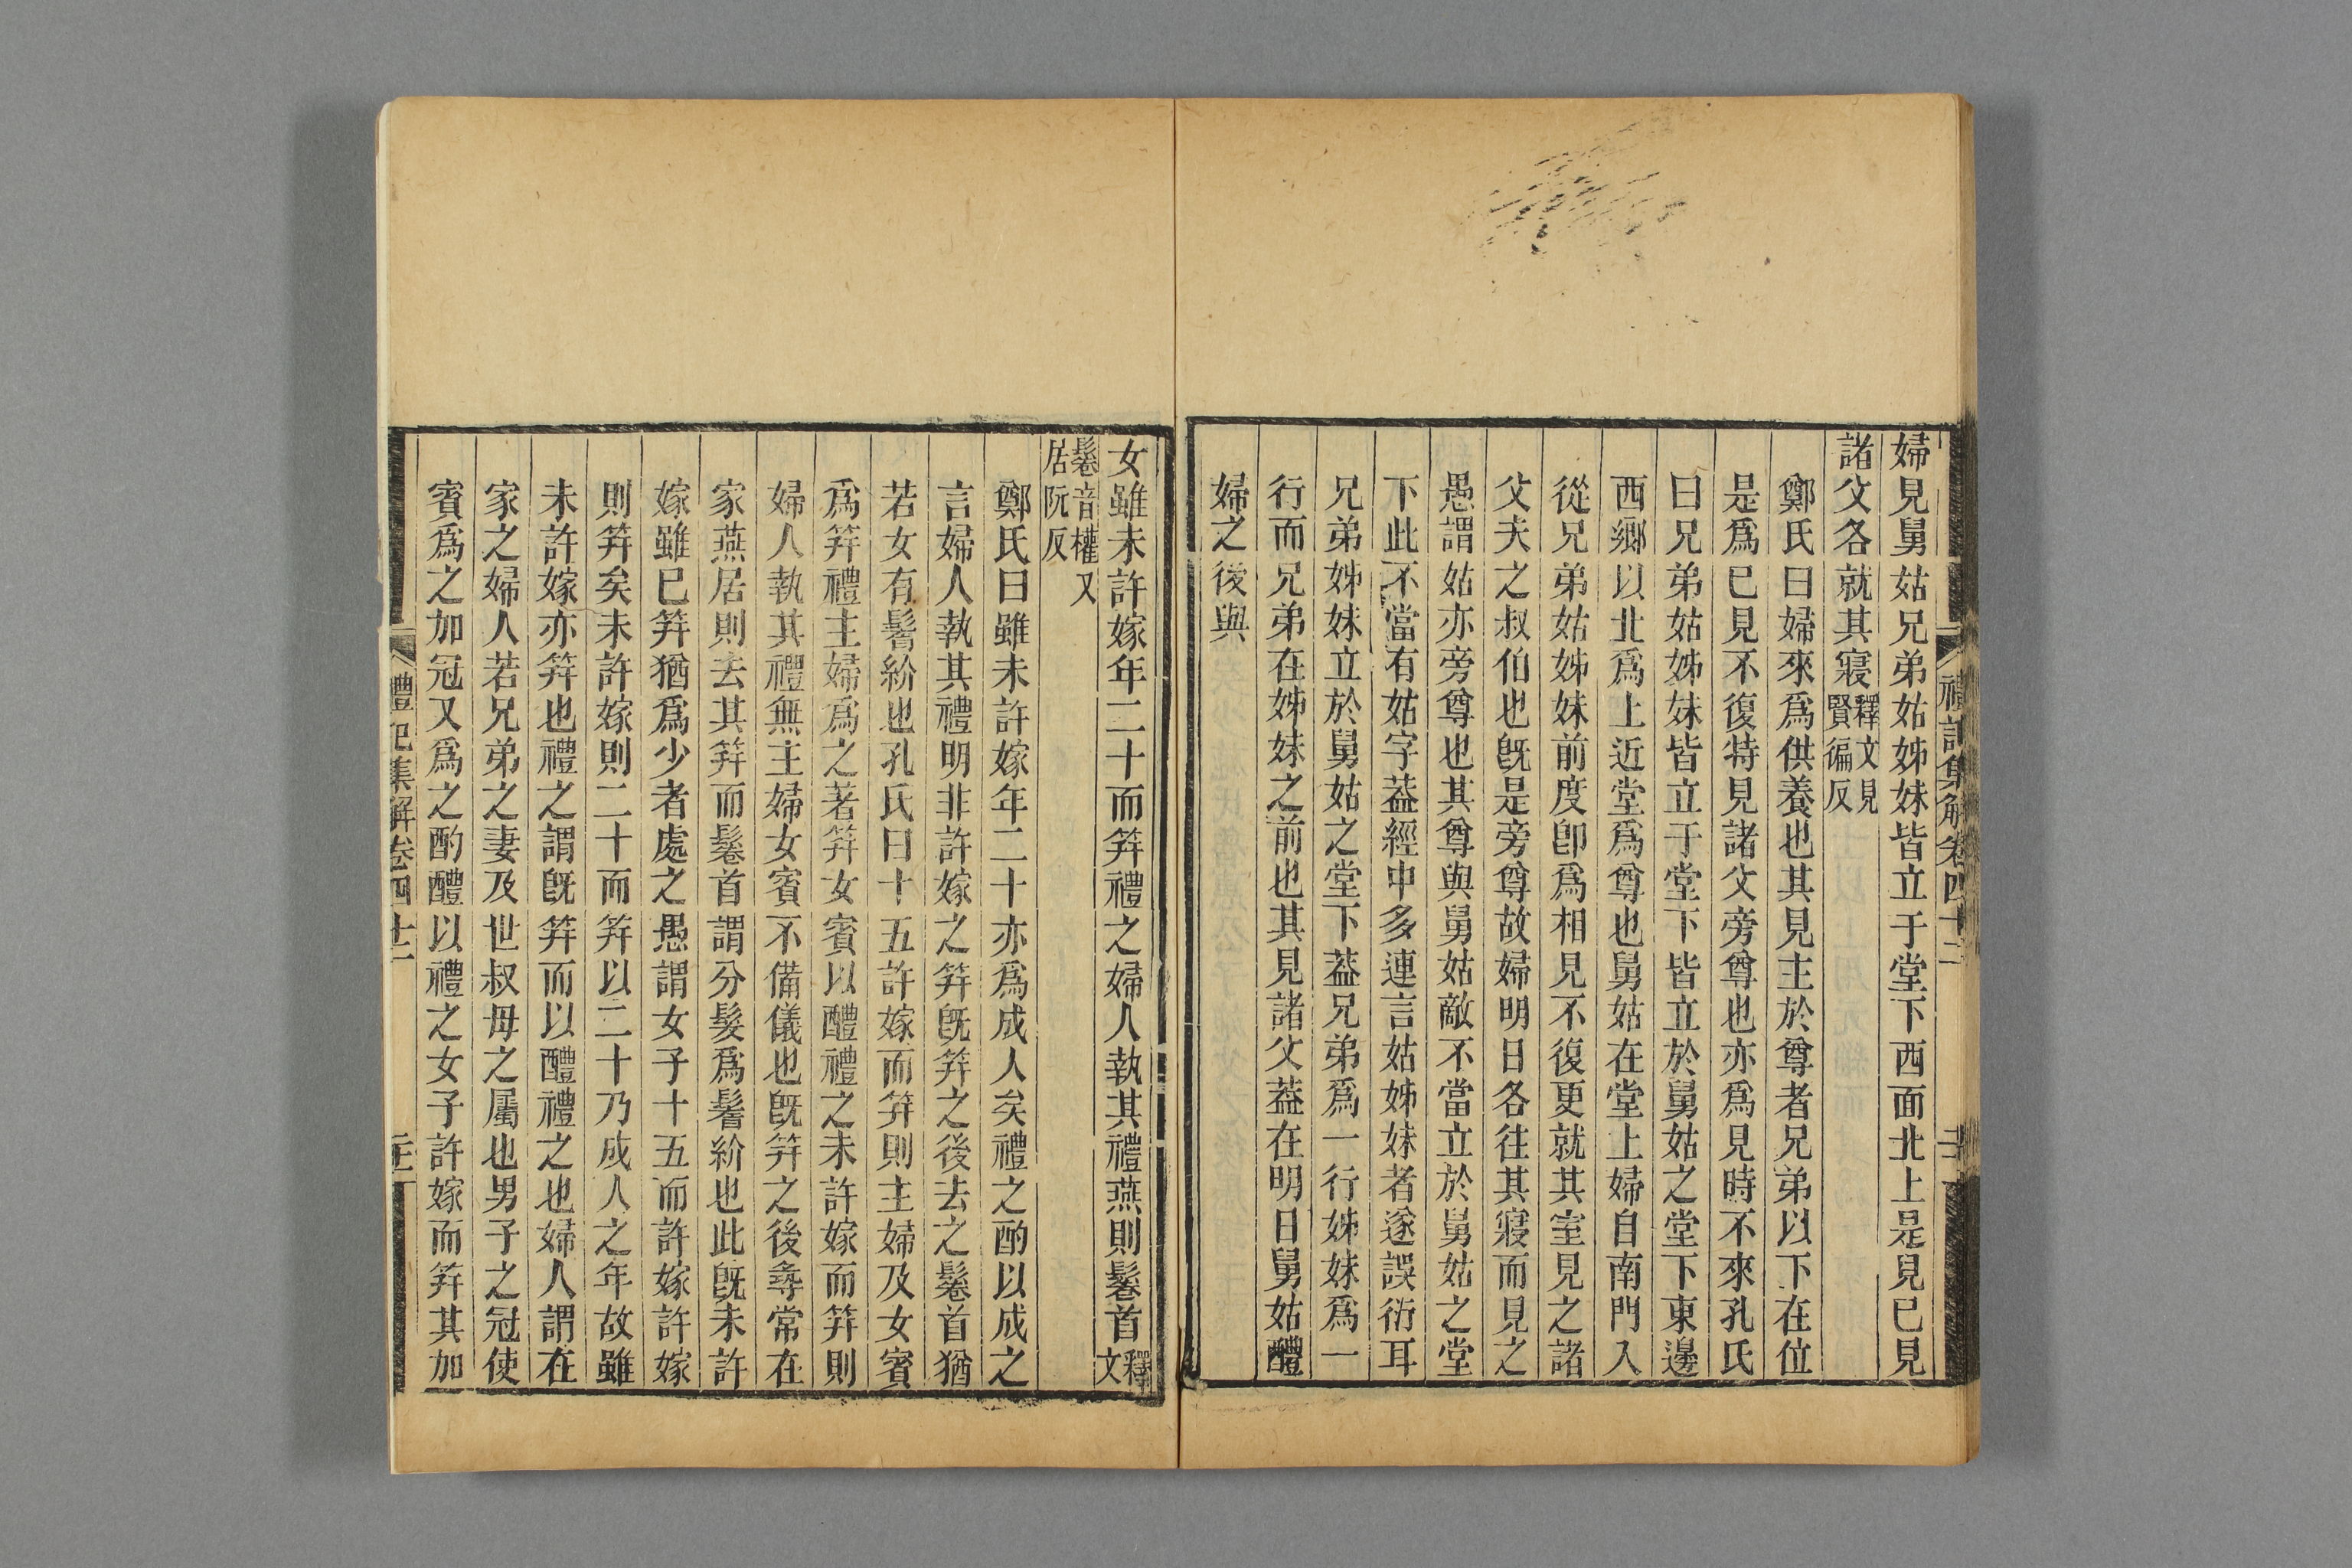 婦見舅姑兄弟姑姊妹皆立于堂下西面北上是見已見
諸父各就其寢釋文見賢徧反
鄭氏曰婦來爲供養也其見主於尊者兄弟以下在位
是爲已見不復特見諸父旁尊也亦爲見時不來孔氏
曰兄弟姑姊妹皆立于堂下皆立於舅姑之堂下東邊
西鄉以北爲上近堂爲尊也舅姑在堂上婦自南門入
從兄弟姑姊妹前度卽爲相見不復更就其室見之諸
父夫之叔伯也旣是旁尊故婦明日各往其寢而見之
愚謂姑亦旁尊也其尊與舅姑敵不當立於舅姑之堂
下此不當有姑字葢經中多連言姑姊妹者遂誤衍耳
兄弟姊妹立於舅姑之堂下葢兄弟爲一行姊妹爲一
行而兄弟在姊妹之前也其見諸父葢在明日舅姑醴
婦之後與
女雖未許嫁年二十而筓禮之婦人執其禮燕則鬈首釋文
鬈音權又居阮反
鄭氏曰雖未許嫁年二十亦爲成人矣禮之酌以成之
言婦人執其禮明非許嫁之筓旣筓之後去之鬈首猶
若女有鬌紒也孔氏曰十五許嫁而筓則主婦及女賓
爲筓禮主婦爲之著筓女賓以醴禮之未許嫁而筓則
婦人執其禮無主婦女賓不備儀也旣筓之後尋常在
家燕居則去其筓而鬈首謂分髮爲鬌紒也此旣未許
嫁雖已筓猶爲少者處之愚謂女子十五而許嫁許嫁
則筓矣未許嫁則二十而筓以二十乃成人之年故雖
未許嫁亦筓也禮之謂旣筓而以醴禮之也婦人謂在
家之婦人若兄弟之妻及世叔母之屬也男子之冠使
賓爲之加冠又爲之酌醴以禮之女子許嫁而筓其加
禮記集解卷四十二